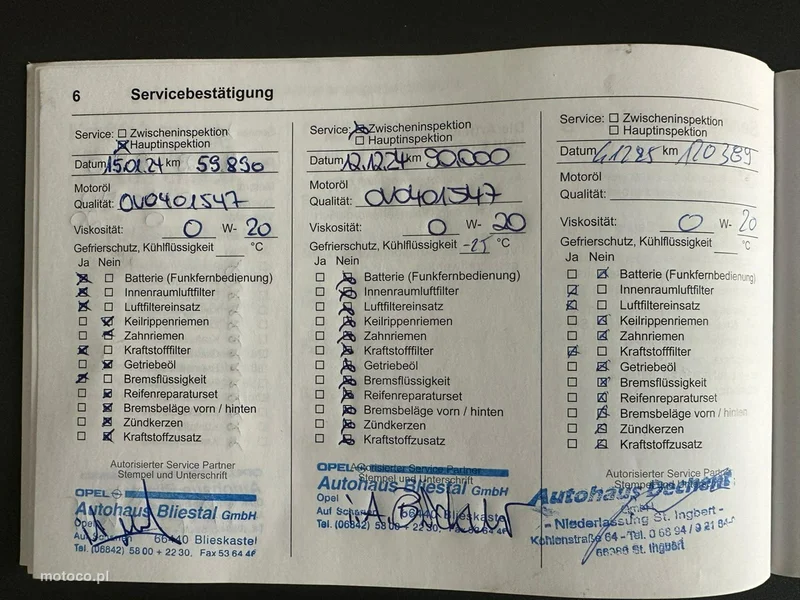 6 Servicebestätigung
Service: Zwischeninspektion
Hauptinspektion
Datum 15.01.24 km 59890
Motoröl
Qualität: OV0401547
Viskosität: 0 W- 20
Gefrierschutz, Kühlflüssigkeit °C
Ja Nein
Batterie (Funkfernbedienung)
Innenraumluftfilter
Luftfiltereinsatz
Keilrippenriemen
Zahnriemen
Kraftstofffilter
Getriebeöl
Bremsflüssigkeit
Reifenreparaturset
Bremsbeläge vorn / hinten
Zündkerzen
Kraftstoffzusatz
Autorisierter Service Partner
Stempel und Unterschrift
OPEL
Autohaus Bliestal GmbH
Opel
66440 Blieskastel
Tel. (06842) 58 00 + 22 30, Fax 53 64 46
Service: Zwischeninspektion
Hauptinspektion
Datum 12.12.24 km 90.000
Motoröl
Qualität: OV0401547
Viskosität: 0 W- 20
Gefrierschutz, Kühlflüssigkeit -25 °C
Ja Nein
Batterie (Funkfernbedienung)
Innenraumluftfilter
Luftfiltereinsatz
Keilrippenriemen
Zahnriemen
Kraftstofffilter
Getriebeöl
Bremsflüssigkeit
Reifenreparaturset
Bremsbeläge vorn / hinten
Zündkerzen
Kraftstoffzusatz
Autorisierter Service Partner
Stempel und Unterschrift
OPEL
Autohaus Bliestal GmbH
Opel
66440 Blieskastel
Tel. (06842) 58 00 + 22 30,
Service: Zwischeninspektion
Hauptinspektion
Datum 4.12.25 km 120389
Motoröl
Qualität:
Viskosität: 0 W- 20
Gefrierschutz, Kühlflüssigkeit °C
Ja Nein
Batterie (Funkfernbedienung)
Innenraumluftfilter
Luftfiltereinsatz
Keilrippenriemen
Zahnriemen
Kraftstofffilter
Getriebeöl
Bremsflüssigkeit
Reifenreparaturset
Bremsbeläge vorn / hinten
Zündkerzen
Kraftstoffzusatz
Autorisierter Service Partner
Stempel und Unterschrift
Autohaus Bechent
GmbH
- Niederlassung St. Ingbert -
Kohlenstraße 64 - Tel. 0 68 94 / 9 21 84-
66386 St. Ingbert
motoco.pl